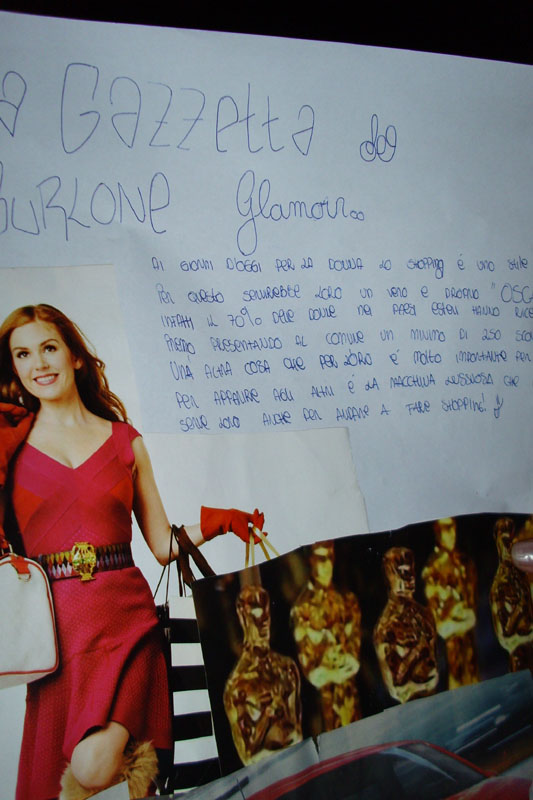 a Gazzetta del
BURLONE Glamour..
AI GIORNI D'OGGI PER LA DONNA LO SHOPPING É UNO STILE
PER QUESTO SERVIREBBE LORO UN VERO E PROPRIO "OSCA
INFATTI IL 70% DELLE DONNE NEI PAESI ESTERI HANNO RICE
PREMIO PRESENTANDO AL COMUNE UN MINIMO DI 250 SCO
UNA ALTRA COSA CHE PER LORO É MOLTO IMPORTANTE PER
PER APPARIRE AGLI ALTRI É LA MACCHINA LUSSUOSA CHE
SERVE LORO ANCHE PER ANDARE A FARE SHOPPING!